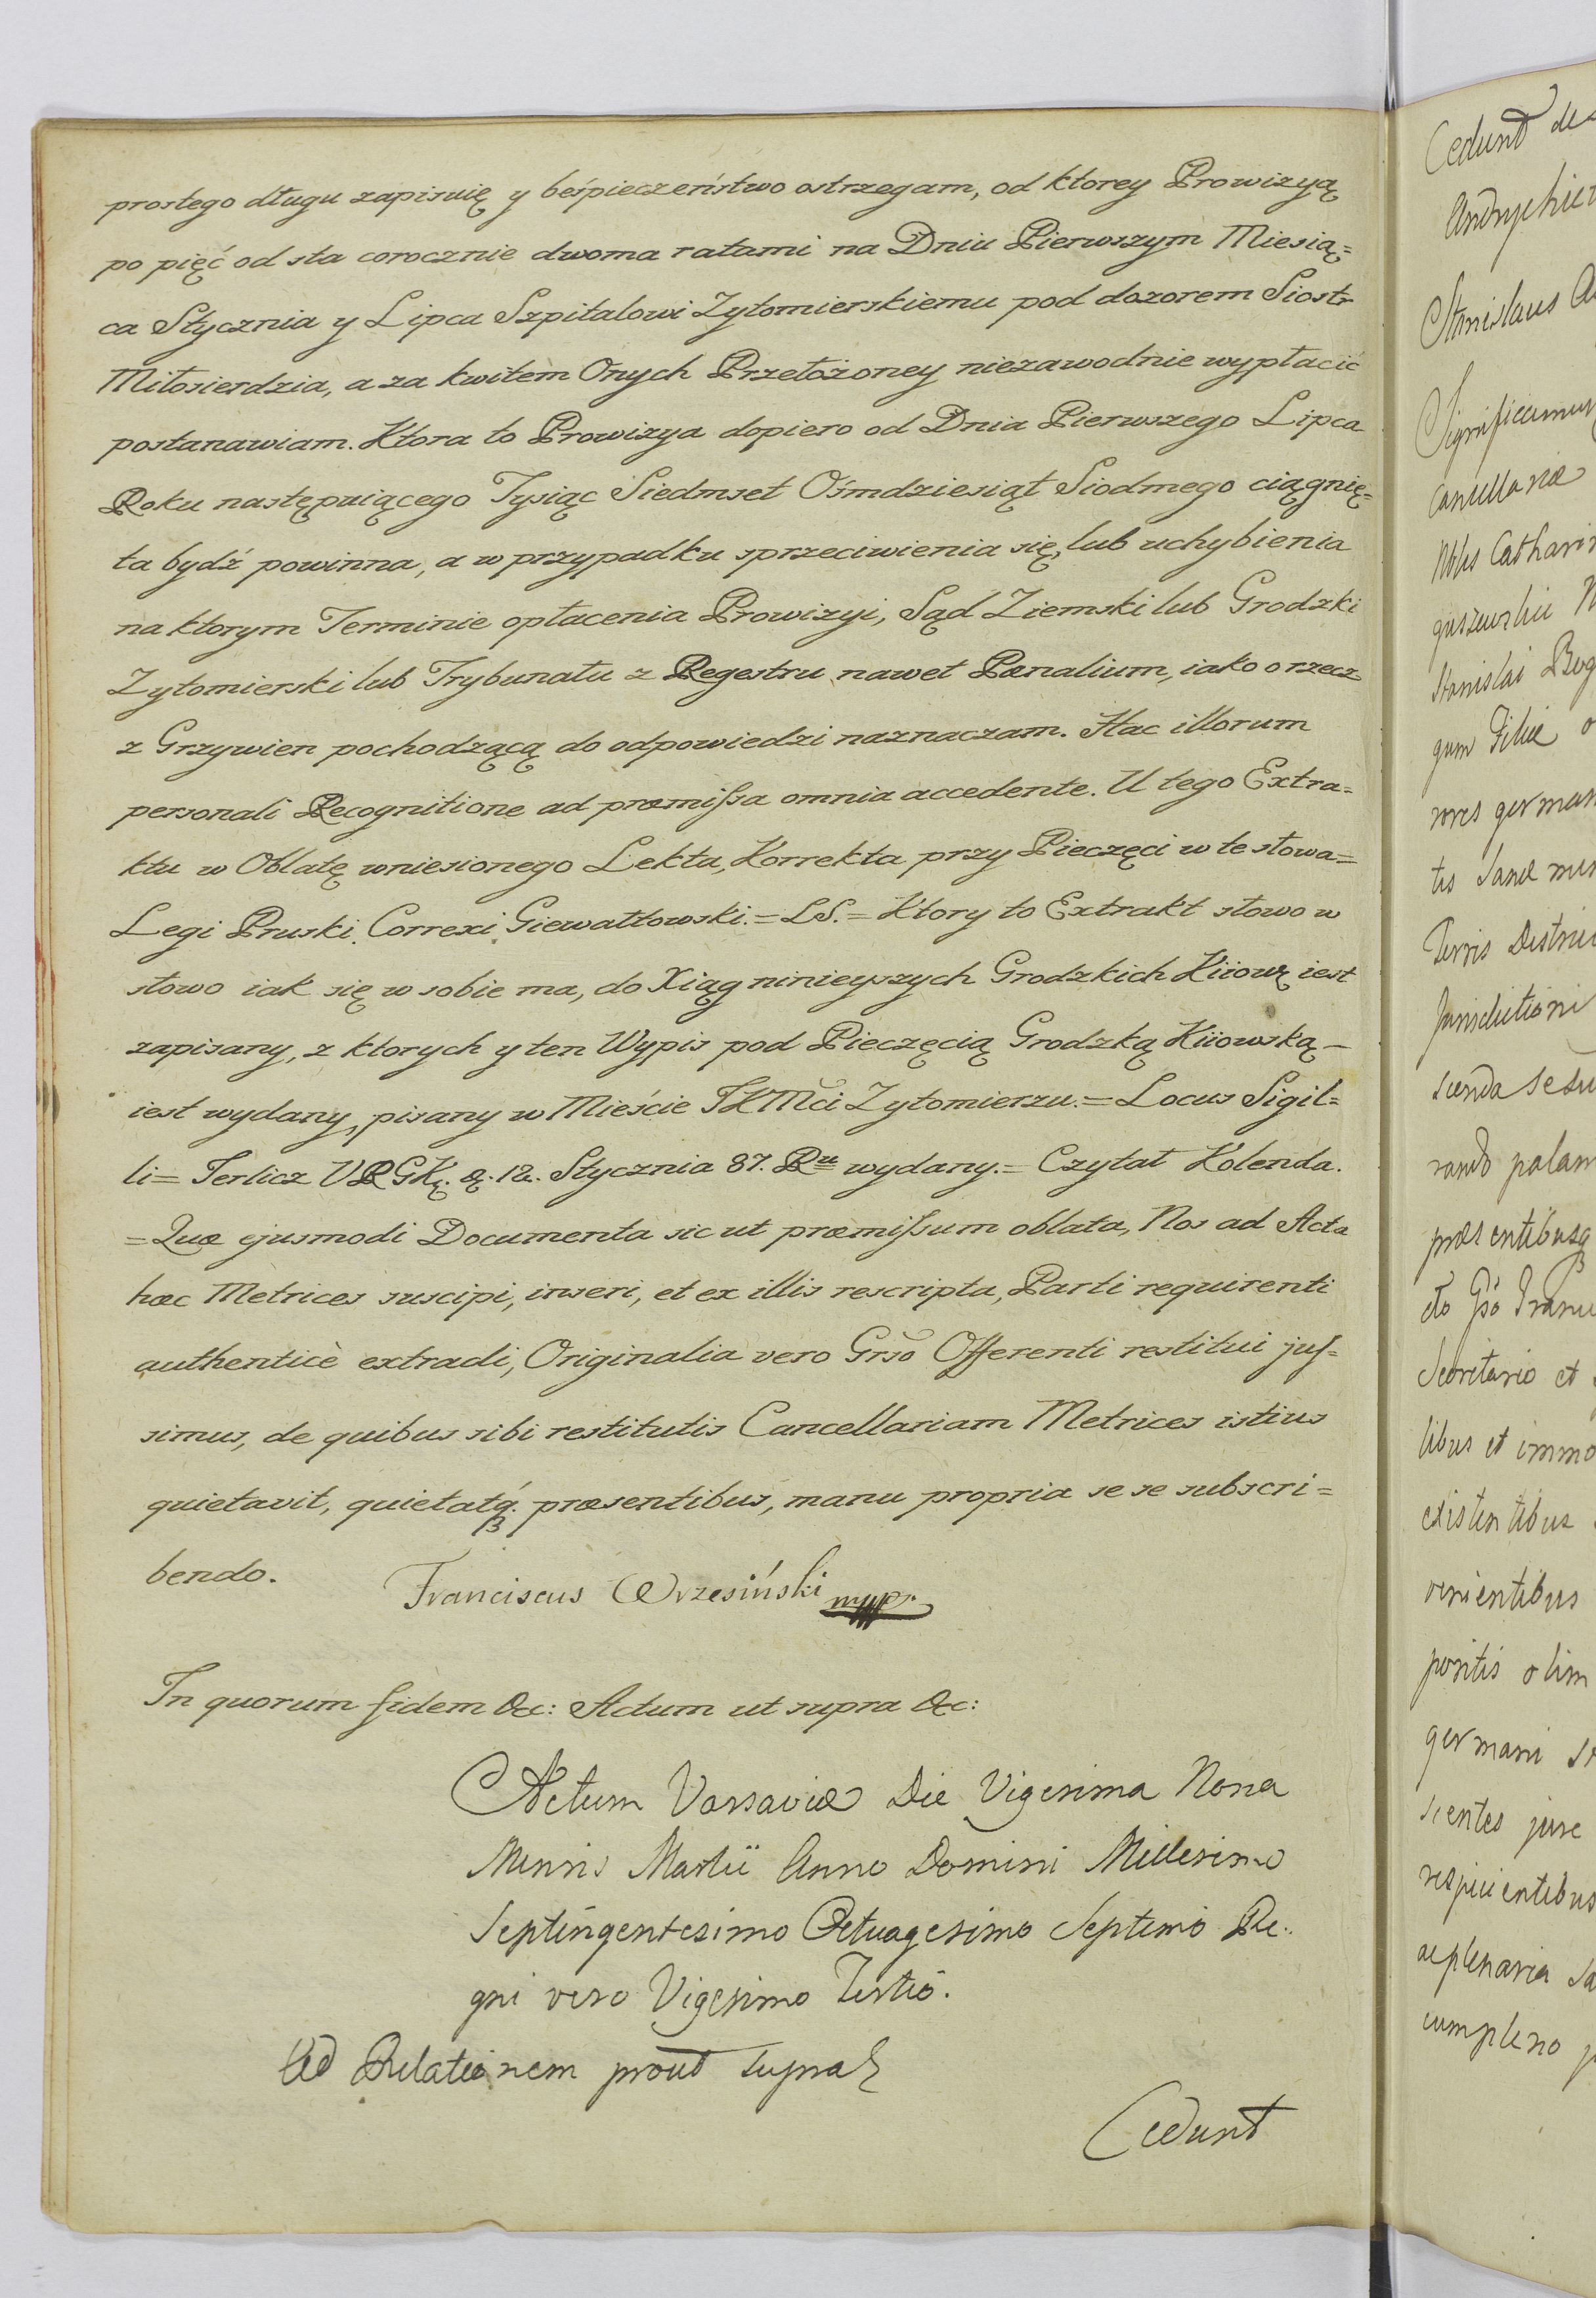 prostego długu zapisuię y beśpieczeństwo ostrzegam, od ktorey Prowizyą
po pięć od sta corocznie dwoma ratami na Dniu Pierwszym Miesią=
ca Stycznia y Lipca Szpitalowi Zytomierskiemu pod dozorem Siostr
Miłosierdzia, a za kwitem Onych Przełożoney niezawodnie wypłacić
postanawiam. Ktora to Prowizya dopiero od Dnia Pierwszego Lipca
Roku następuiącego Tysiąc Siedmset Ośmdziesiąt Siodmego ciągnię=
ta bydź powinna, a w przypadku sprzeciwienia się, lub uchybienia
na ktorym Terminie opłacenia Prowizyi, Sąd Ziemski lub Grodzki
Zytomierski lub Trybunału z Regestru nawet Pœnalium, iako o rzecz
z Grzywien pochodzącą do odpowiedzi naznaczam. Hac illorum
personali Recognitione ad præmissa omnia accedente. U tego Extra=
ktu w Oblatę wniesionego Lekta, Korrekta przy Pieczęci w te słowa=
Legi Pruski. Correxi Giewałtowski.= LS.= Ktory to Extrakt słowo w
słowo iak się w sobie ma, do Xiąg ninieyszych Grodzkich Kiiowę iest
zapisany, z ktorych y ten Wypis pod Pieczęcią Grodzką Kiiowską –
iest wydany, pisany w Mieście JKMci Zytomierzu.= Locus Sigil=
li= Terlicz VRGKę. 12. Stycznia 87. Ru wydany.= Czytał Kolenda.
=Quæ ejusmodi Documenta sic ut præmissum oblata, Nos ad Acta
hæc Metrices suscipi, inseri, et ex illis rescripta, Parti requirenti
authenticè extradi, Originalia vero Grso Offerenti restitui jus=
simus, de quibus sibi restitutis Cancellariam Metrices istius
quietavit, quietatq. præsentibus, manu propria se se subscri=
bendo.
Franciscus Wrzesiński mpp.
In quorum fidem &c: Actum ut supra &c:
Actum Varsaviæ Die Vigesima Nona
Mensis Martii Anno Domini Millesimo
Septingentesimo Octuagesimo Septimo Re=
gni vero Vigesimo Tertio.
Ad Relationem prout supra
Cedunt
Cedunt de
Andrychie
Stanislaus
Significamus
Cancellariæ
Nblis Cathari
guszewskie
Stanislai Bog
gum Filiæ
rores german
tis sanæ men
Terris Distri
Jurisdictioni
scienda sesu
rando palam
præsentibusq
cto Gso Franci
Secretario et
libus et immo
existentibus
venientibus
positis olim
germani
cientes jure
respicientibus
ac plenaria sa
cum pleno